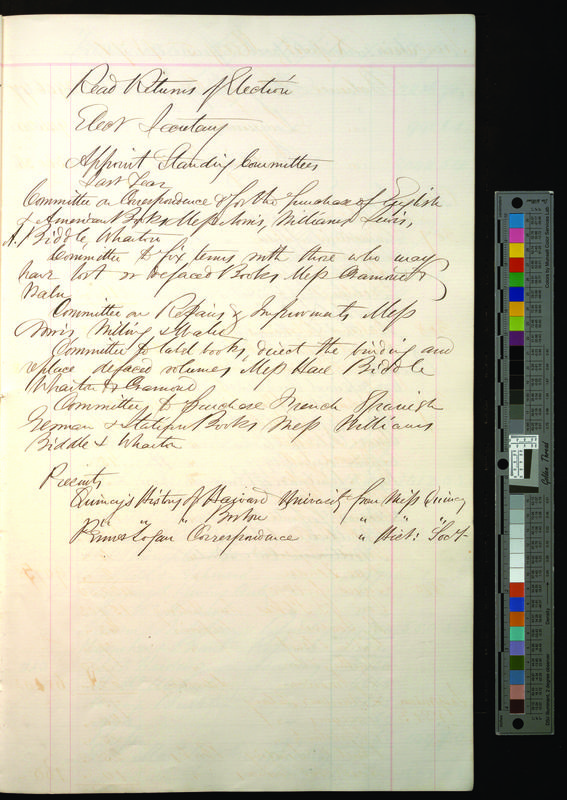 Read Returns of Election
Elect Secretary
Appoint Standing Committees
Last Year
Committee on Correspondence & for the purchase of English
& American Books Mess Norris, Williams, Lewis,
A. Biddle, Wharton
Committee to fix terms with those who may
have lost or defaced Books Mess Cramond &
Waln
Committee on Repairs & Improvements Mess
Norris Willing & Waln
Committee to label books, direct the binding and
replace defaced volumes Mess Hare Biddle
Wharton & Cramond
Committee to purchase French Spanish
German & Books Mess Williams
Biddle & Wharton
Presents
Quincy's History of Harvard University from Miss Quincy
" " Boston " " "
Penn & Logan Correspondence " Hist: Socy